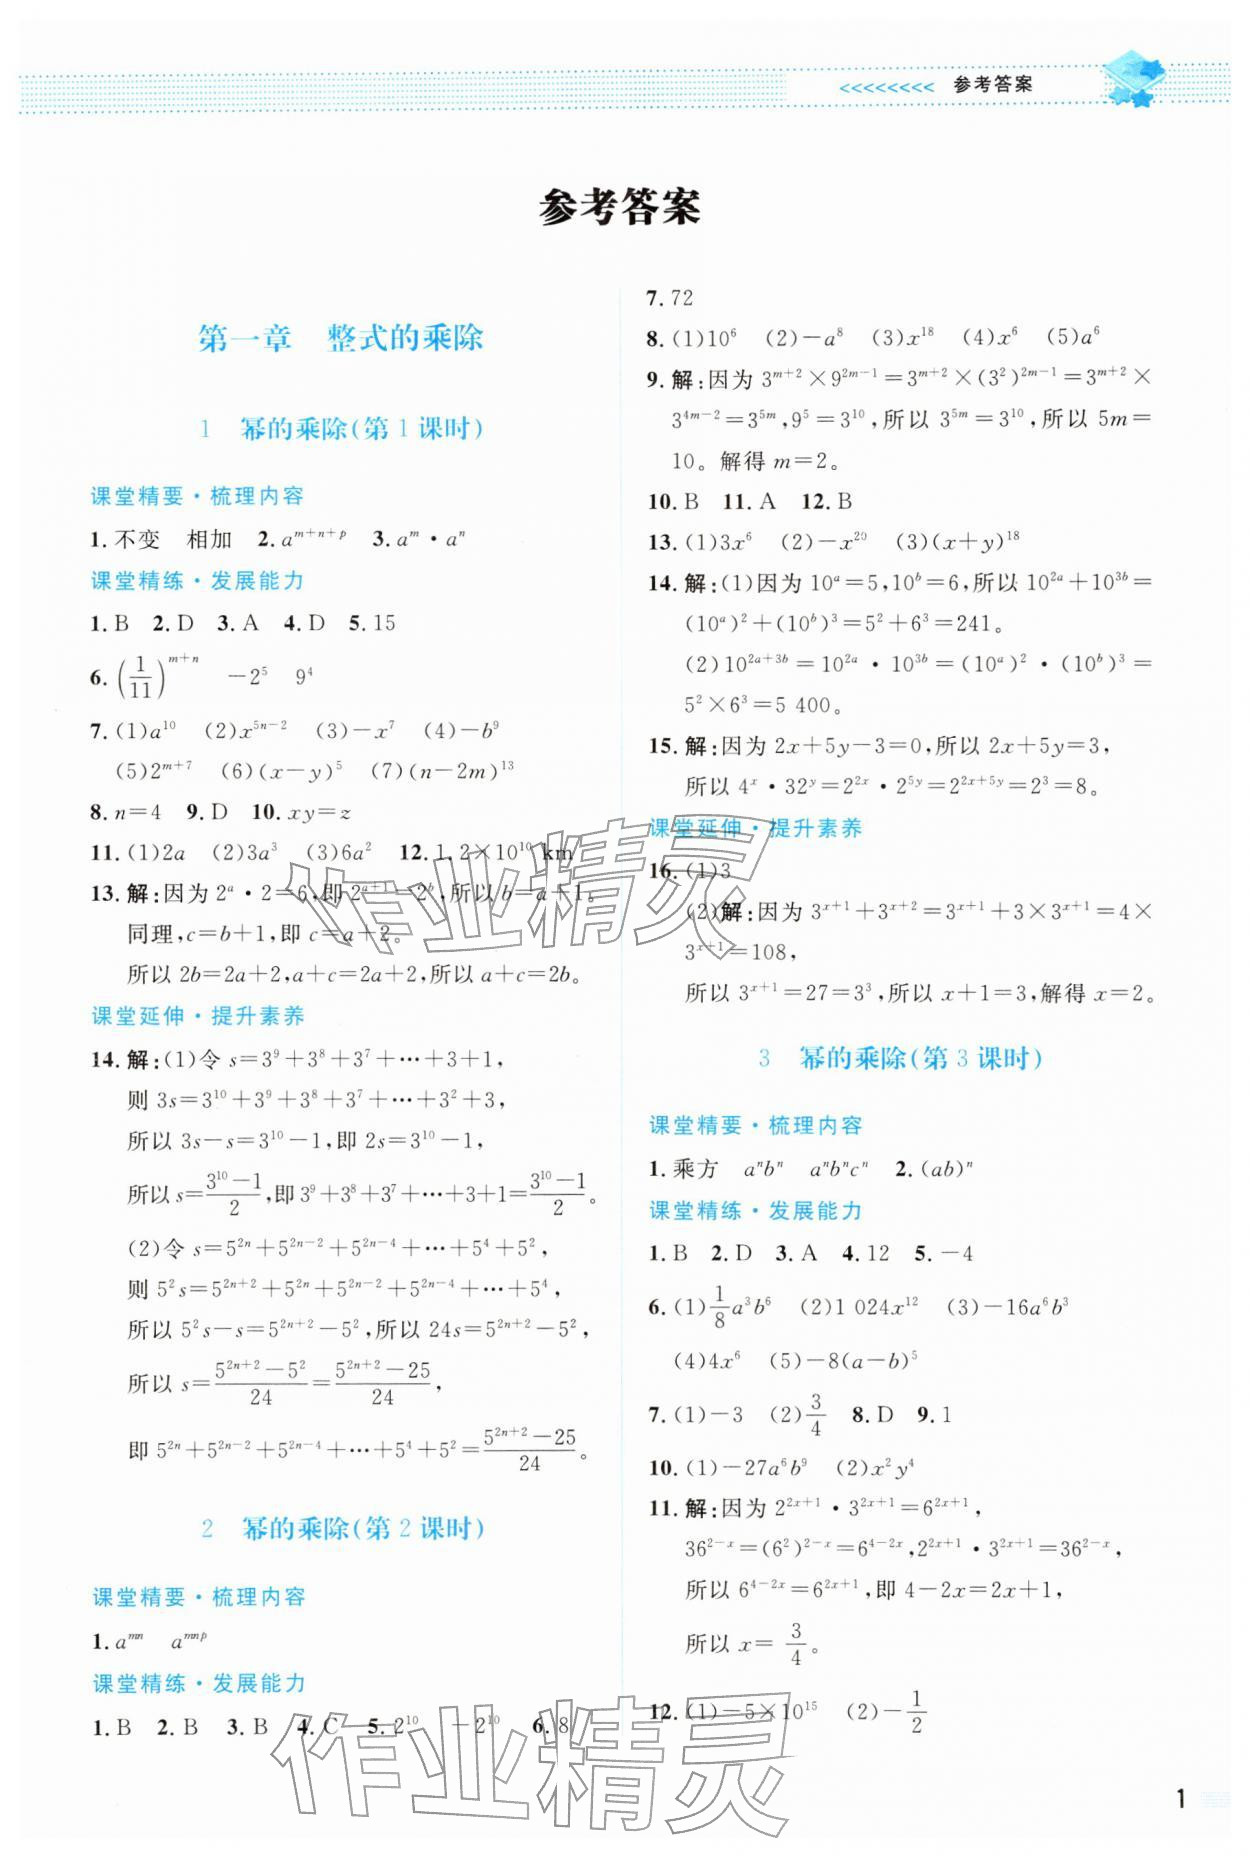 <<<<<<<< 参考答案
参考答案
第一章 整式的乘除
1 幂的乘除(第1课时)
课堂精要·梳理内容
1. 不变 相加 2. a^{m+n+p} 3. a^m·a^n
课堂精练·发展能力
1. B 2. D 3. A 4. D 5. 15
6. (1/11)^{m+n} -2^5 9^4
7. (1)a^{10} (2)x^{5n-2} (3)-x^7 (4)-b^9
(5)2^{m+7} (6)(x-y)^5 (7)(n-2m)^{13}
8. n=4 9. D 10. xy=z
11. (1)2a (2)3a^3 (3)6a^2 12. 1.2×10^{10} km
13. 解:因为 2^a·2=6,即 2^{a+1}=2^b,所以 b=a+1。
同理,c=b+1,即 c=a+2。
所以 2b=2a+2,a+c=2a+2,所以 a+c=2b。
课堂延伸·提升素养
14. 解:(1)令 s=3^9+3^8+3^7+…+3+1,
则 3s=3^{10}+3^9+3^8+3^7+…+3^2+3,
所以 3s-s=3^{10}-1,即 2s=3^{10}-1,
所以 s=(3^{10}-1)/2,即 3^9+3^8+3^7+…+3+1=(3^{10}-1)/2。
(2)令 s=5^{2n}+5^{2n-2}+5^{2n-4}+…+5^4+5^2,
则 5^2s=5^{2n+2}+5^{2n}+5^{2n-2}+5^{2n-4}+…+5^4,
所以 5^2s-s=5^{2n+2}-5^2,所以 24s=5^{2n+2}-5^2,
所以 s=(5^{2n+2}-5^2)/24=(5^{2n+2}-25)/24,
即 5^{2n}+5^{2n-2}+5^{2n-4}+…+5^4+5^2=(5^{2n+2}-25)/24。
2 幂的乘除(第2课时)
课堂精要·梳理内容
1. a^{mn} a^{mnp}
课堂精练·发展能力
1. B 2. B 3. B 4. C 5. 2^{10} -2^{10} 6. 8
7. 72
8. (1)10^6 (2)-a^8 (3)x^{18} (4)x^6 (5)a^6
9. 解:因为 3^{m+2}×9^{2m-1}=3^{m+2}×(3^2)^{2m-1}=3^{m+2}×
3^{4m-2}=3^{5m},9^5=3^{10},所以 3^{5m}=3^{10},所以 5m=
10。解得 m=2。
10. B 11. A 12. B
13. (1)3x^6 (2)-x^{20} (3)(x+y)^{18}
14. 解:(1)因为 10^a=5,10^b=6,所以 10^{2a}+10^{3b}=
(10^a)^2+(10^b)^3=5^2+6^3=241。
(2)10^{2a+3b}=10^{2a}·10^{3b}=(10^a)^2·(10^b)^3=
5^2×6^3=5 400。
15. 解:因为 2x+5y-3=0,所以 2x+5y=3,
所以 4^x·32^y=2^{2x}·2^{5y}=2^{2x+5y}=2^3=8。
课堂延伸·提升素养
16. (1)3
(2)解:因为 3^{x+1}+3^{x+2}=3^{x+1}+3×3^{x+1}=4×
3^{x+1}=108,
所以 3^{x+1}=27=3^3,所以 x+1=3,解得 x=2。
3 幂的乘除(第3课时)
课堂精要·梳理内容
1. 乘方 a^nb^n a^nb^nc^n 2. (ab)^n
课堂精练·发展能力
1. B 2. D 3. A 4. 12 5. -4
6. (1)1/8 a^3b^6 (2)1 024x^{12} (3)-16a^6b^3
(4)4x^6 (5)-8(a-b)^5
7. (1)-3 (2)3/4 8. D 9. 1
10. (1)-27a^6b^9 (2)x^2y^4
11. 解:因为 2^{2x+1}·3^{2x+1}=6^{2x+1},
36^{2-x}=(6^2)^{2-x}=6^{4-2x},2^{2x+1}·3^{2x+1}=36^{2-x},
所以 6^{4-2x}=6^{2x+1},即 4-2x=2x+1,
所以 x=3/4。
12. (1)-5×10^{15} (2)-1/2
作业精灵
作业精灵
1